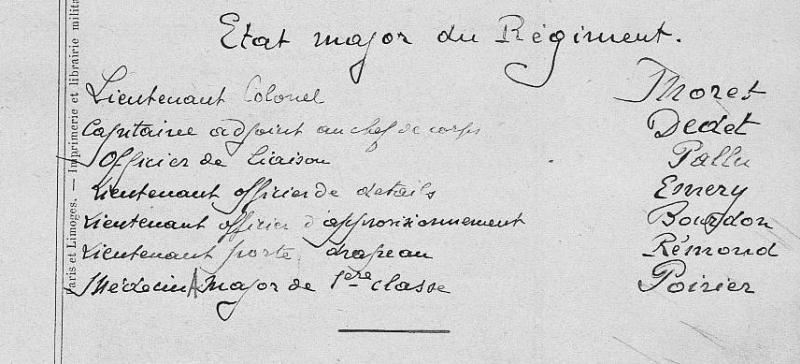 Etat major du Régiment.
Lieutenant Colonel Moret
Capitaine adjoint au chef de corps Dedet
Officier de liaison Pallu
Lieutenant officier de details Emery
Lieutenant officier d'approvisionnement Bourdon
Lieutenant porte drapeau Rémond
Médecin Major de 1ère classe Poirier
Paris et Limoges. — Imprimerie et librairie milita